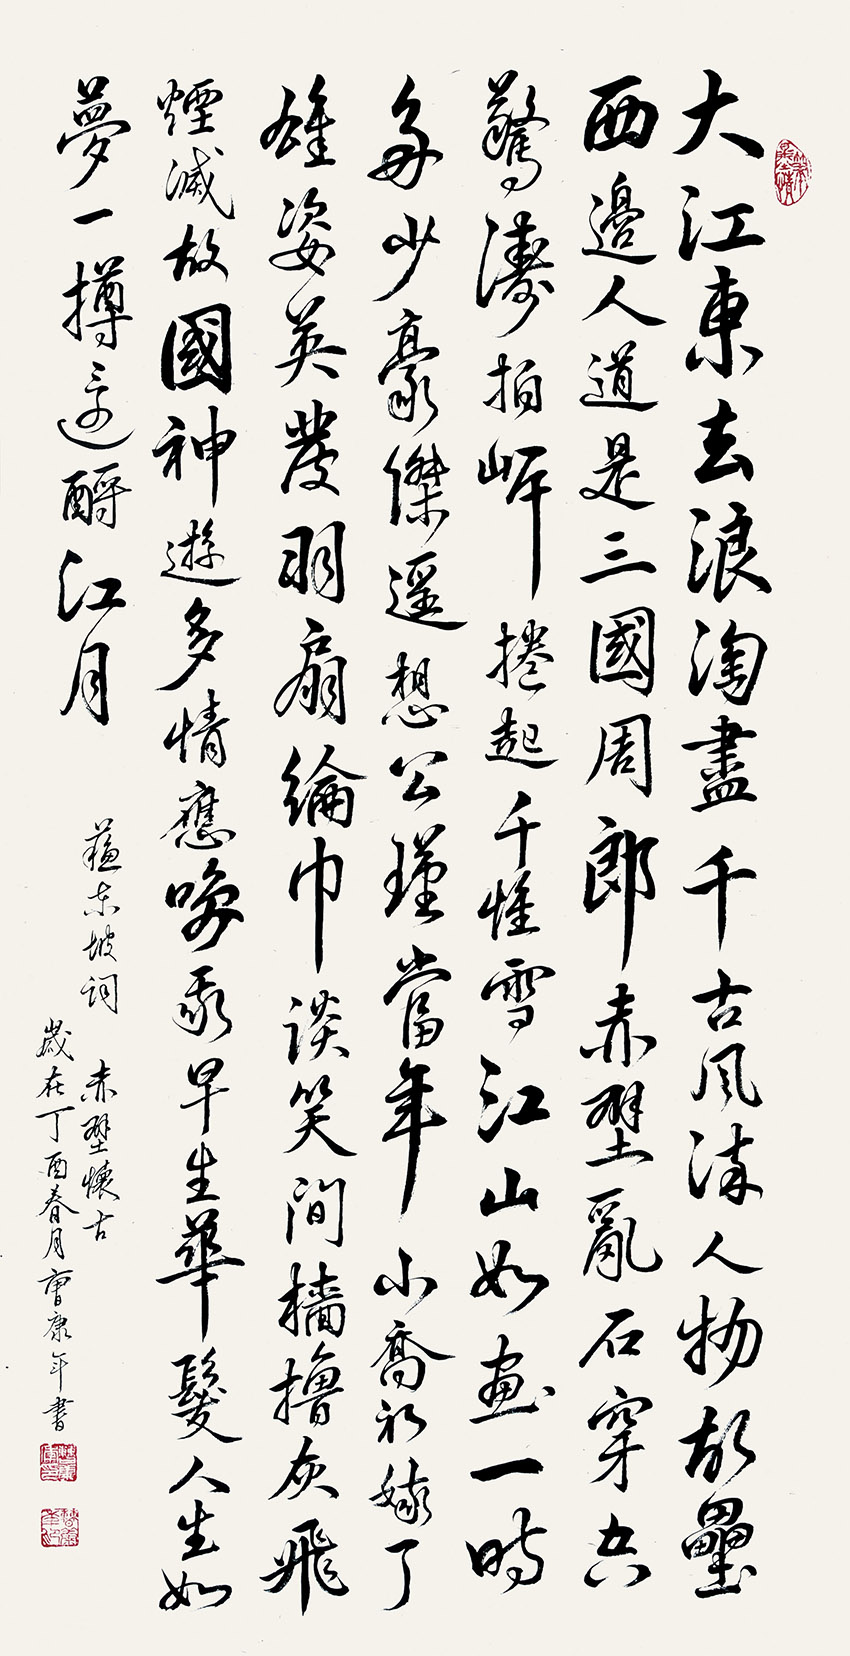 大江東去浪淘盡千古風流人物故壘
西邊人道是三國周郎赤壁亂石穿空
驚濤拍岸捲起千堆雪江山如畫一時
多少豪傑遙想公瑾當年小喬初嫁了
雄姿英發羽扇綸巾談笑間檣櫓灰飛
煙滅故國神遊多情應咲我早生華髮人生如
夢一樽還酹江月
蘇東坡詞 赤壁懷古
歲在丁酉春月曹康年書